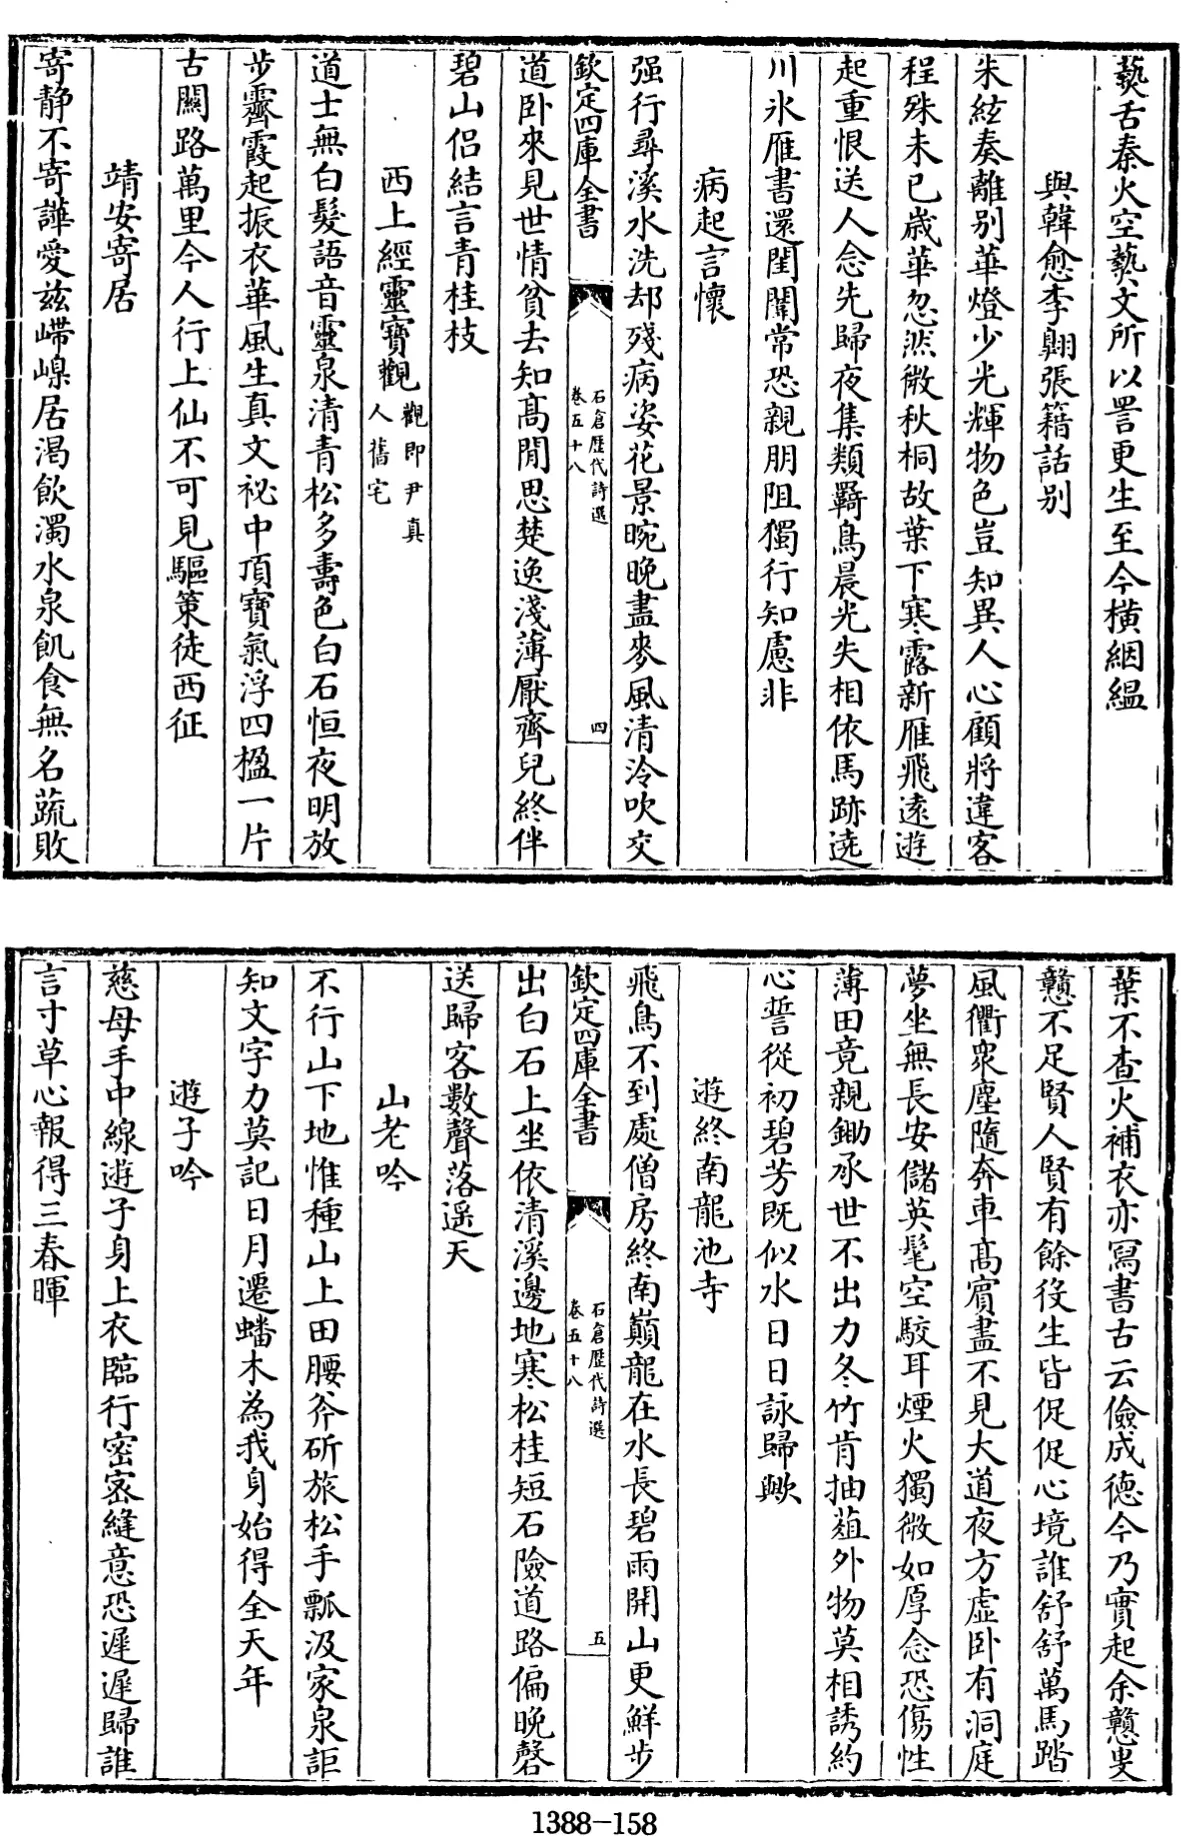 爇舌秦火空爇文所以詈更生至今横絪緼
與韓愈李翺張籍話别
朱絃奏離别華燈少光輝物色豈知異人心顧將違客
程殊未已歲華忽然微秋桐故葉下寒露新雁飛逺遊
起重恨送人念先歸夜集類羇鳥晨光失相依馬跡遶
川氷雁書還閨闈常恐親朋阻獨行知慮非
病起言懷
强行尋溪水洗却殘病姿花景晼晚盡麥風清泠吹交
欽定四庫全書
石倉歷代詩選
卷五十八
四
道卧來見世情貧去知髙閒思楚逸淺薄厭齊兒終伴
碧山侣結言青桂枝
西上經靈寳觀觀即尹真
人舊宅
道士無白髮語音靈泉清青松多壽色白石恒夜明放
步霽霞起振衣華風生真文祕中頂寳氣浮四楹一片
古闗路萬里今人行上仙不可見驅策徒西征
靖安寄居
寄静不寄譁愛兹嵽嵲居渴飲濁水泉飢食無名蔬敗
葉不查火補衣亦冩書古云儉成德今乃實起余戇叟
戇不足賢人賢有餘役生皆促促心境誰舒舒萬馬踏
風衢衆塵隨奔車髙賔盡不見大道夜方虚卧有洞庭
夢坐無長安儲英髦空駮耳煙火獨微如厚念恐傷性
薄田竟親鋤承世不出力冬竹肯抽葅外物莫相誘約
心誓從初碧芳既似水日日詠歸歟
遊終南龍池寺
飛鳥不到處僧房終南巔龍在水長碧雨開山更鮮步
欽定四庫全書
石倉歷代詩選
卷五十八
五
出白石上坐依清溪邊地寒松桂短石險道路偏晩磬
送歸客數聲落遥天
山老吟
不行山下地惟種山上田腰斧斫旅松手瓢汲家泉詎
知文字力莫記日月遷蟠木為我身始得全天年
遊子吟
慈母手中線遊子身上衣臨行密密縫意恐遲遲歸誰
言寸草心報得三春暉
1388-158